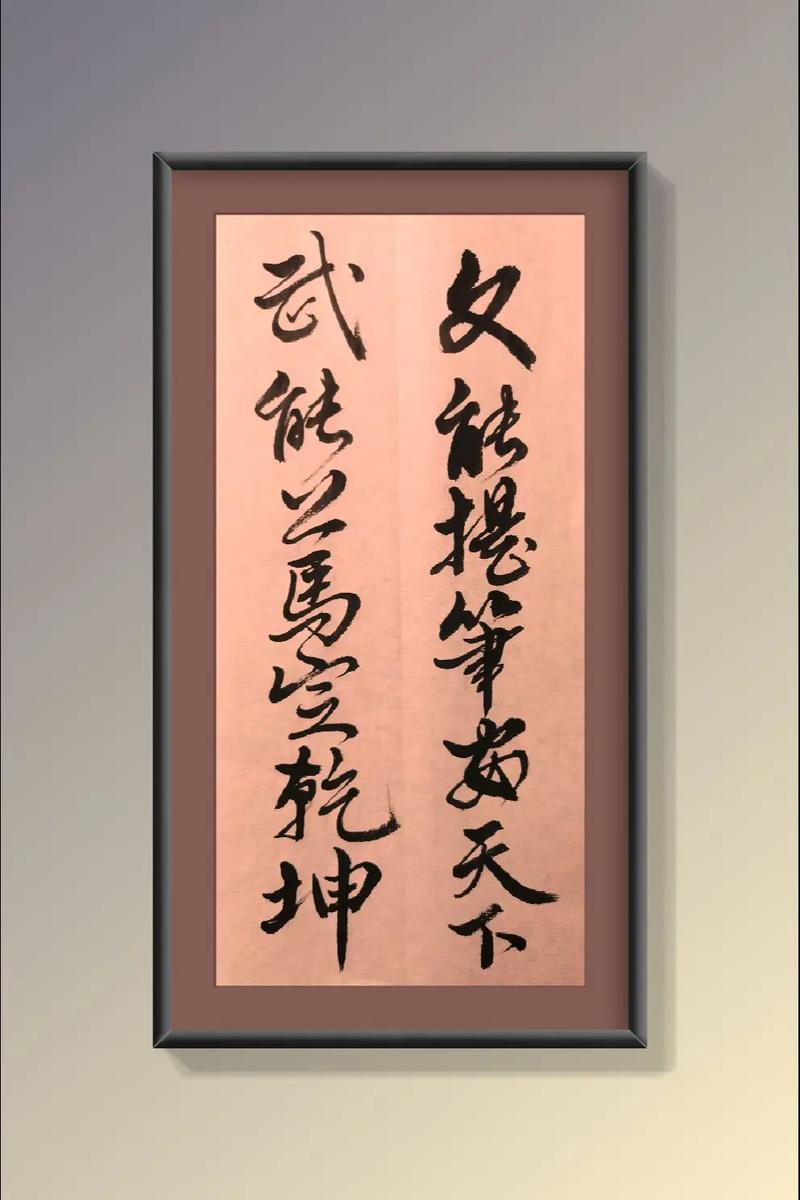 文能提筆安天下
武能上馬定乾坤